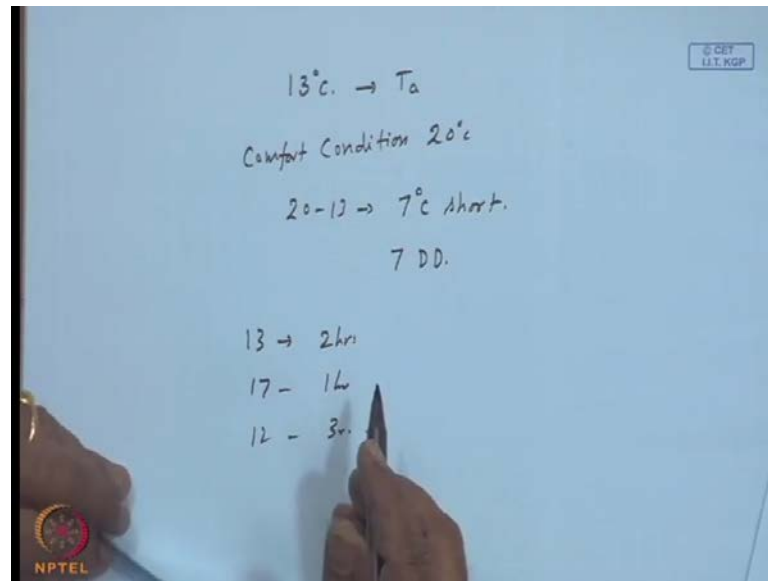 © CET
I.I.T. KGP
13°C. → Ta
Comfort Condition 20°C
20-13 → 7°C short.
7 DD.
13 → 2hrs
17 - 1hr
12 - 3r.
NPTEL